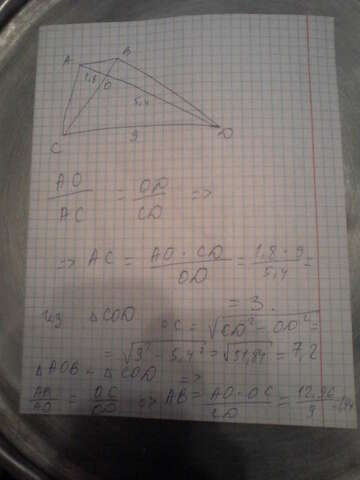 A B
1,8 O
5,4
C 9 D
AO/AC = OD/CD =>
=> AC = AO · CD/OD = 1,8 · 9/5,4 =
= 3.
из △COD OC = √CD² - OD² =
= √9² - 5,4² = √51,84 = 7,2
△AOB ~ △COD =>
AB/AO = OC/OD => AB = AO · OC/CD = 12,96/9 =